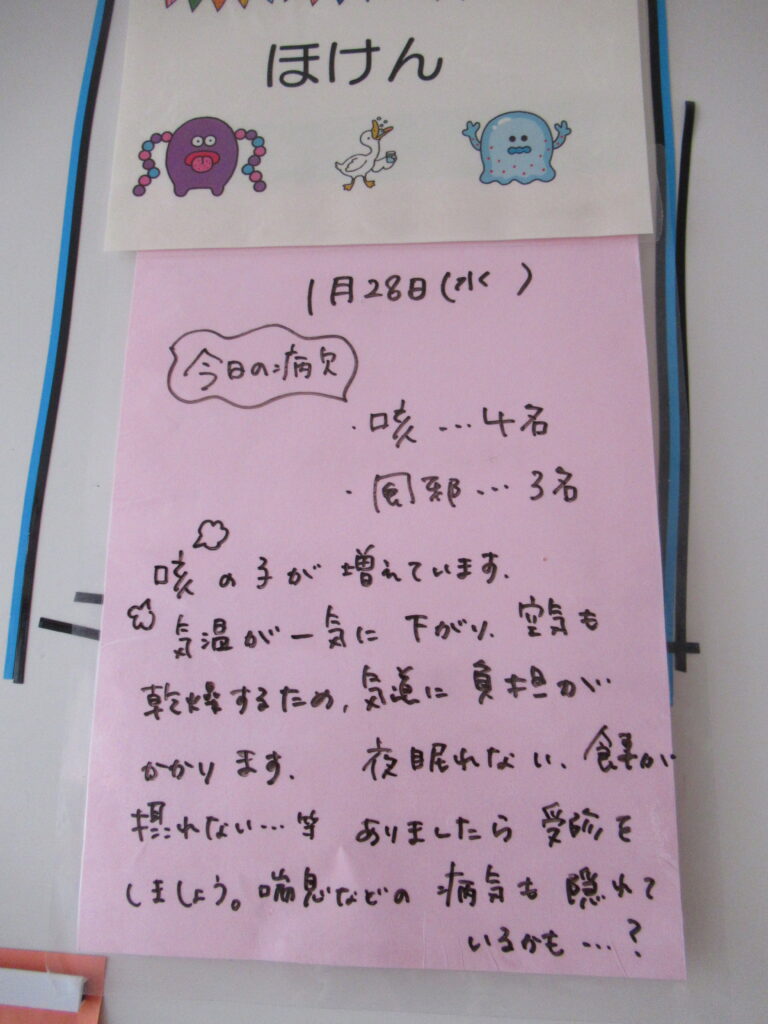 ほけん
1月28日(水)
今日の病欠
・咳…4名
・風邪…3名
咳の子が増えています。
気温が一気に下がり、空気も
乾燥するため、気道に負担が
かかります。 夜眠れない、食事が
摂れない…等 ありましたら受診を
しましょう。喘息などの病気も隠れて
いるかも…?